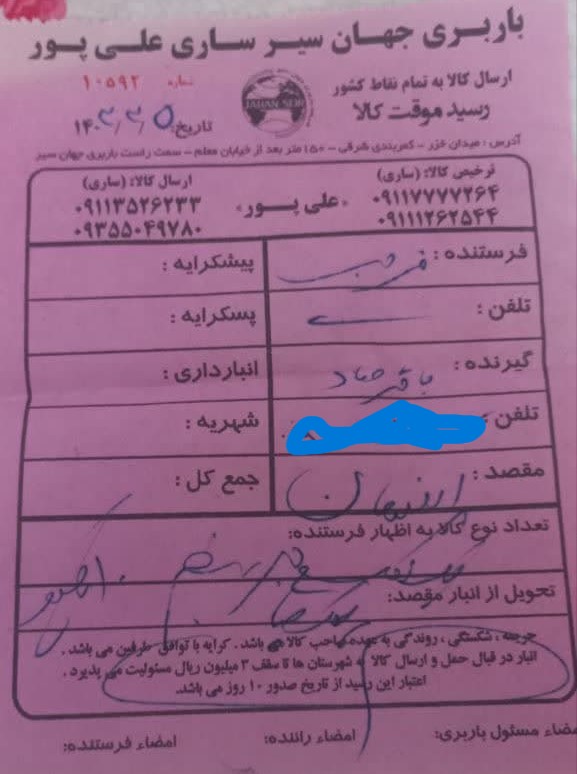 باربری جهان سیر ساری علی پور
ارسال کالا به تمام نقاط کشور
شماره ۱۰۵۹۲
JAHAN SEIR
رسید موقت کالا
تاریخ: ۱۴۰۳,۳,۲۵
آدرس: میدان خزر - کمربندی شرقی - ۱۵۰ متر بعد از خیابان معلم - سمت راست باربری جهان سیر
ترخیص کالا: (ساری)
۰۹۱۱۷۷۷۷۲۶۴
۰۹۱۱۱۲۶۲۵۴۴
«علی پور»
ارسال کالا: (ساری)
۰۹۱۱۳۵۲۶۲۳۳
۰۹۳۵۵۰۴۹۷۸۰
فرستنده:
پیشکرایه:
تلفن:
پسکرایه:
گیرنده: باقر
انبارداری:
تلفن:
شهریه:
مقصد: اصفهان
جمع کل:
تعداد نوع کالا به اظهار فرستنده:
تحویل از انبار مقصد:
شکستگی، روندگی به عهده صاحب کالا می باشد. کرایه با توافق طرفین می باشد.
انبار در قبال حمل و ارسال کالا به شهرستان ها تا سقف ۳ میلیون ریال مسئولیت می پذیرد.
اعتبار این رسید از تاریخ صدور ۱۰ روز می باشد.
امضاء مسئول باربری:
امضاء راننده:
امضاء فرستنده: